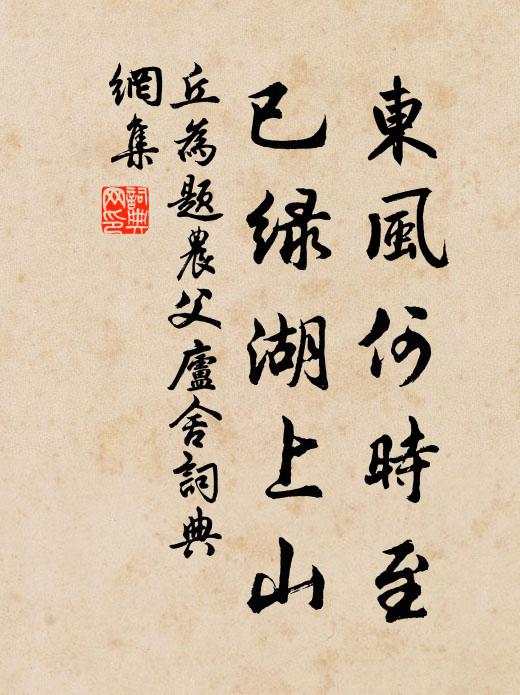 東風何時至
已绿湖上山
丘為題農父廬舍詞典
網集
詞典
网印